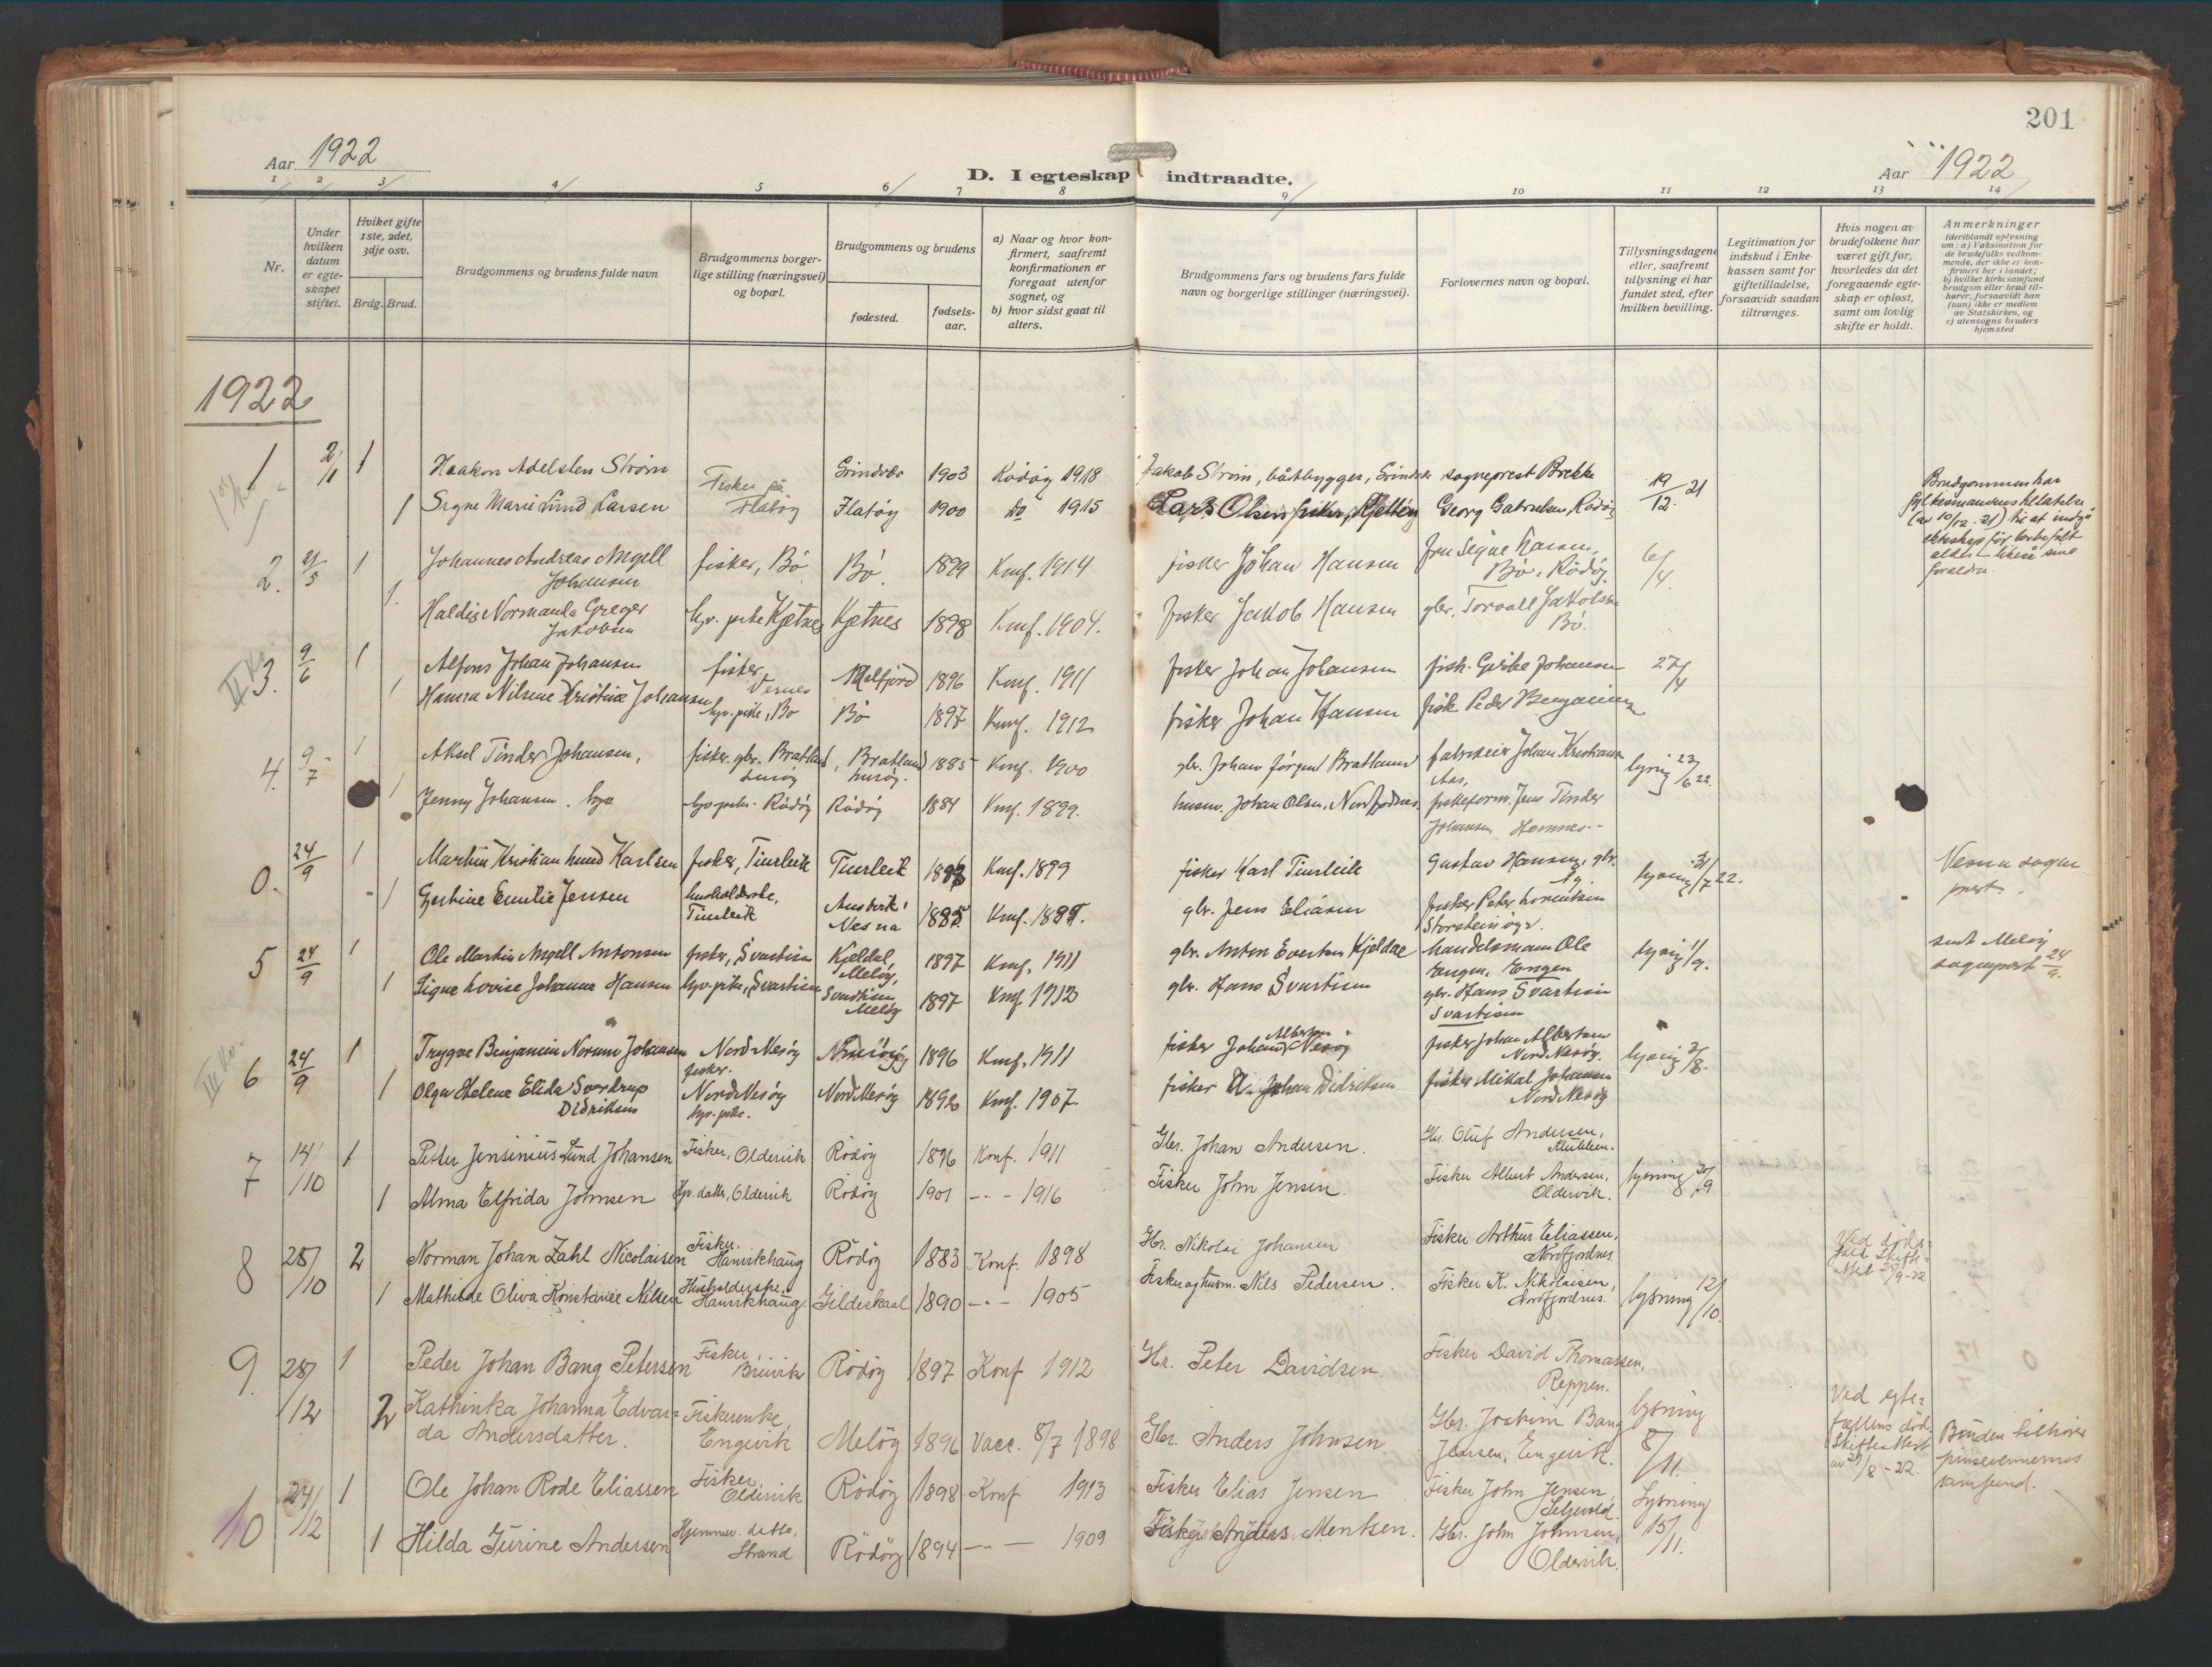 201
Aar 1922
D. I egteskap indtraadte.
Aar 1922
1 2 3 4 5 6 7 8 9 10 11 12 13 14
Nr.
Under hvilken datum er egteskapet stiftet.
Hvilket gifte 1ste, 2det, 3dje osv.
Brdg. Brud.
Brudgommens og brudens fulde navn
Brudgommens borgerlige stilling (næringsvei) og bopæl.
Brudgommens og brudens
fødested.
fødsels-aar.
a) Naar og hvor konfirmert, saafremt konfirmationen er foregaat utenfor sognet, og
b) hvor sidst gaat til alters.
Brudgommens fars og brudens fars fulde navn og borgerlige stillinger (næringsvei).
Forlovernes navn og bopæl.
Tillysningsdagene eller, saafremt tillysning ei har fundet sted, efter hvilken bevilling.
Legitimation for indskud i Enkekassen samt for giftetilladelse, forsaavidt saadan tiltrænges.
Hvis nogen av brudefolkene har været gift før, hvorledes da det foregaaende egteskap er opløst, samt om lovlig skifte er holdt.
Anmerkninger (deriblandt oplysning om: a) Vaksination for de brudefolks vedkommende, der ikke er konfirmert her i landet; b) hvilket kirkesamfund brudgom eller brud tilhører, forsaavidt han (hun) ikke er medlem av Statskirken, og c) utensogns bruders hjemsted
1922
1 2/1 1 Haakon Adelsten Strøm Fisker på Flatøy 1903 Rödöy 1918 Jakob Strøm, båtbygger, sogneprest Brekke 19/12 21
1 Signe Marie Lund Larsen Flatøy 1900 do 1915 Lars Olsen fisker, Georg Gabrielsen, Rödöy
Brudgommen har
fylkesmandens tillatelse
(av 10/12-21) til at indgå
ekteskap før lovbefalt
alder - likeså sine
foreldre.
2. 21/5 1 Johannes Andreas Angell Johansen fisker, Bö Bö 1899 Konf. 1914 fisker Johan Hansen fru Signe Hansen, Bö, Rödöy 6/4.
1. Haldis Normanda Greger Jakobsen hjv. pike Kjetnes Kjetnes 1898 Konf. 1904. fisker Jakob Hansen gbr. Torvall Jakobsen Bö.
II Kv.
3. 9/6 1 Alfons Johan Johansen fisker, Vernes Melfjord 1896 Konf. 1911 fisker Johan Johansen fisk. Johansen 27/4
1 Hanna Nilsine Kristine Johansen hjv. pike, Bö Bö 1897 Konf. 1912 fisker Johan Hansen fisk. Peder
4. 9/7 1 Aksel Tinder Johansen, fisker. gbr. Bratland Lurøy Bratland Lurøy. 1885 Konf. 1900 gbr. Johan Jørgen Bratland Johan Kristiansen Aas, lysing 23/6 22.
1 Jenny Johansen. hjv. pike. Rödöy Rödöy 1884 Konf. 1899. husm. Johan Olsen, Nordfjordnes. Jens Tinder Johansen Hemnes.
0. 24/9 1 Martin Kristian Lund Karlsen fisker, Tinrleite Konf. 1899 fisker Karl Gustav Hansen, gbr. lysing 31/7 22. Nesna sogneprest.
1 Gertine Emilie Jensen husholderske, Nesna gbr. Jens Eliasen fisker Peter Lorentsen
5 24/9 1 Ole Martin Angell Antonsen fisker, Svartisen Kjeldal, Meløy, 1897 Konf. 1911 gbr. Anton Evertsen Kjeldal handelsmann Ole Engen, Engen lysing 1/9. sendt Meløy sogneprest 24/9.
1 Signe Lovise Johanna Hansen hjv. pike, Svartisen Svartisen Meløy 1897 Konf 1912 gbr. Hans Svartisen gbr. Hans Svartisen Svartisen
III Kv.
6 24/9 1 Trygve Benjamin Norum Johansen Nord Nesøy fisker. 1896 Konf. 1911 fisker Johan Albertsen fisker Johan Albertsen Nord Nesøy. lysing 3/8.
1 Olga Helene Elida Sverdrup Didriksen Nord Nesøy hjv. pike. Nord Nesøy 1892 Konf. 1907 fisker Johan Didriksen fisker Mikal Johansen Nord Nesøy
7 14/10 1 Petter Jensinius Lund Johansen Fisker, Oldervik Rödöy 1896 Konf. 1911 Gbr. Johan Andersen. Gbr. Oluf Andersen,
1 Alma Elfrida Johnsen Hjv. datter, Oldervik Rödöy 1901 - - - 1916 Fisker John Jensen. Fisker Albert Andersen, Oldervik. lysning 20/9
8 28/10 2 Norman Johan Zahl Nicolaisen Fisker. Hamrikhaug Rödöy 1883 Konf. 1898 Gbr. Nikolai Johansen Fisker Arthur Eliassen, Nordfjordnes. Ved døds-
1 Mathilde Oliva Konstance Nilsen Husholderske Hamrikhaug. Gildeskaal 1890 - - - 1905 Fisker og husm. Nils Pedersen. Fisker K. Nikolaisen, Nordfjordnes. lysning 12/10.
9. 28/12 1 Peder Johan Bang Petersen Fisker, Rödöy 1897 Konf 1912 Gbr. Peter Davidsen. Fisker David Thomassen, Reppen.
2 Kathinka Johanna Edvarda Andersdatter. Fiskerenke, Engevik Meløy 1896 Vacc. 8/7 1898 Gbr. Anders Johnsen Gbr. Joakim Bang Jensen, Engevik. lysning 8/11. Ved egtefællens død. Skifteattest av 29/8-22. Bruden tilhører pinsevennernes samfund.
10 24/12 1 Ole Johan Rode Eliassen Fisker, Oldervik Rödöy 1898 Konf 1913 Fisker Elias Jensen Fisker John Jensen, Selsevold. Lysning 15/11.
1 Hilda Jurine Andersen Hjemmev. datter, Strand Rödöy 1894 - - - 1909 Fisker Anders Mentsen. Gbr. John Johnsen, Oldervik.